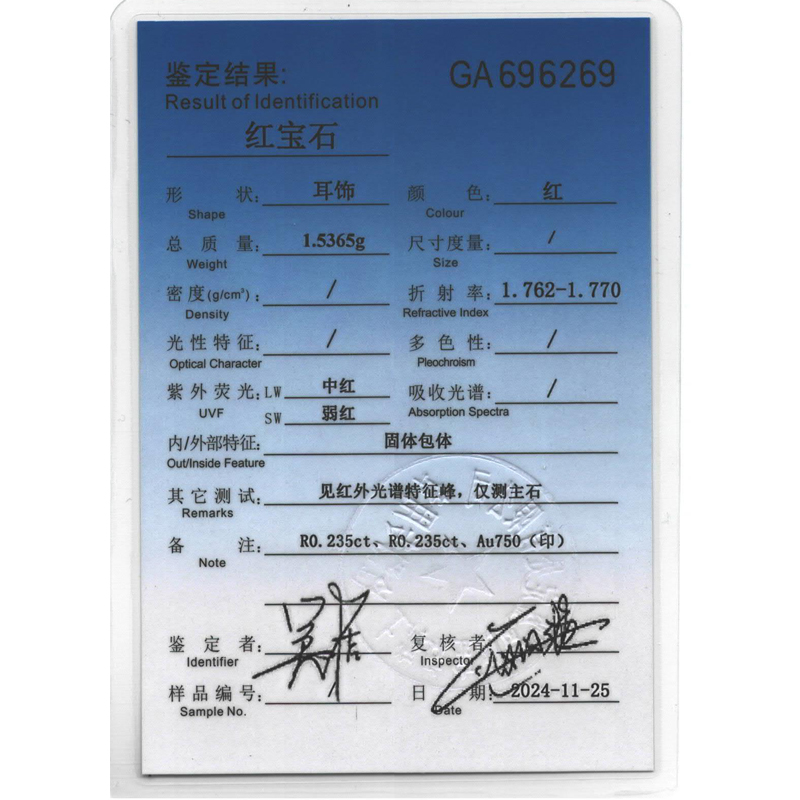 鉴定结果: GA696269
Result of Identification
红宝石
形 状: 耳饰 颜 色: 红
Shape Colour
总 质 量: 1.5365g 尺寸度量: /
Weight Size
密 度(g/cm³): / 折 射 率: 1.762-1.770
Density Refractive Index
光性特征: / 多 色 性: /
Optical Character Pleochroism
紫外荧光: LW 中红 吸收光谱: /
UVF SW 弱红 Absorption Spectra
内/外部特征: 固体包体
Out/Inside Feature
其它测试: 见红外光谱特征峰，仅测主石
Remarks
备 注: R0.235ct、R0.235ct、Au750（印）
Note
鉴 定 者: 复 核 者:
Identifier Inspector
样品编号: 日 期: 2024-11-25
Sample No. Date